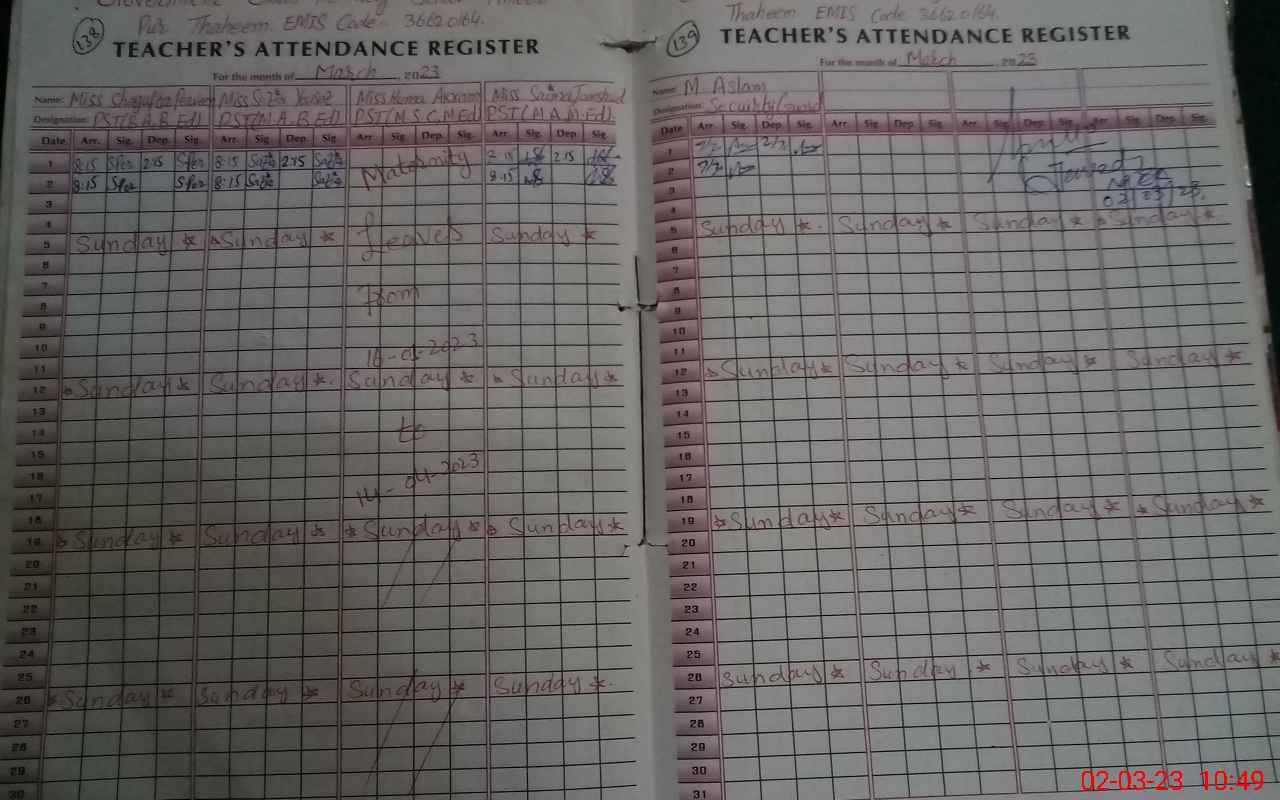 Pur Thaheem EMIS Code 36620164.
138
TEACHER'S ATTENDANCE REGISTER
For the month of March, 2023
Name: Miss Shagufta Parveen Miss Miss Huma Akram Miss Saima Jamshad
Designation: PST(B.A, B.Ed) PST(M.A, B.Ed) PST(M.S.C, M.Ed) PST(M.A, M.Ed)
Date Arr. Sig. Dep. Sig. Arr. Sig. Dep. Sig. Arr. Sig. Dep. Sig. Arr. Sig. Dep. Sig.
1 8:15 2:15 8:15 2:15 Maternity 2:15
2 8:15 8:15 8:15
3
4 Leaves
5 Sunday * Sunday * Sunday *
6
7 From
8
9
10 16-01-2023
11
12 Sunday * Sunday * Sunday * Sunday *
13
14 to
15
16
17 14-04-2023
18
19 Sunday * Sunday * * Sunday * Sunday *
20
21
22
23
24
25
26 * Sunday * Sunday * Sunday * Sunday *
27
28
29
30
Thaheem EMIS Code 36620164.
139
TEACHER'S ATTENDANCE REGISTER
For the month of March 2023
Name: M Aslam
Designation: Security Guard
Date Arr. Sig. Dep. Sig. Arr. Sig. Dep. Sig. Arr. Sig. Dep. Sig. Arr. Sig. Dep. Sig.
1 7/2 2/2
2 7/2
3 02 23
4
5 Sunday * Sunday * Sunday * Sunday *
6
7
8
9
10
11
12 Sunday * Sunday * Sunday * Sunday *
13
14
15
16
17
18
19 * Sunday * Sunday * Sunday * * Sunday *
20
21
22
23
24
25
26 Sunday * Sunday * Sunday * Sunday *
27
28
29
30
31
02-03-23 10:49